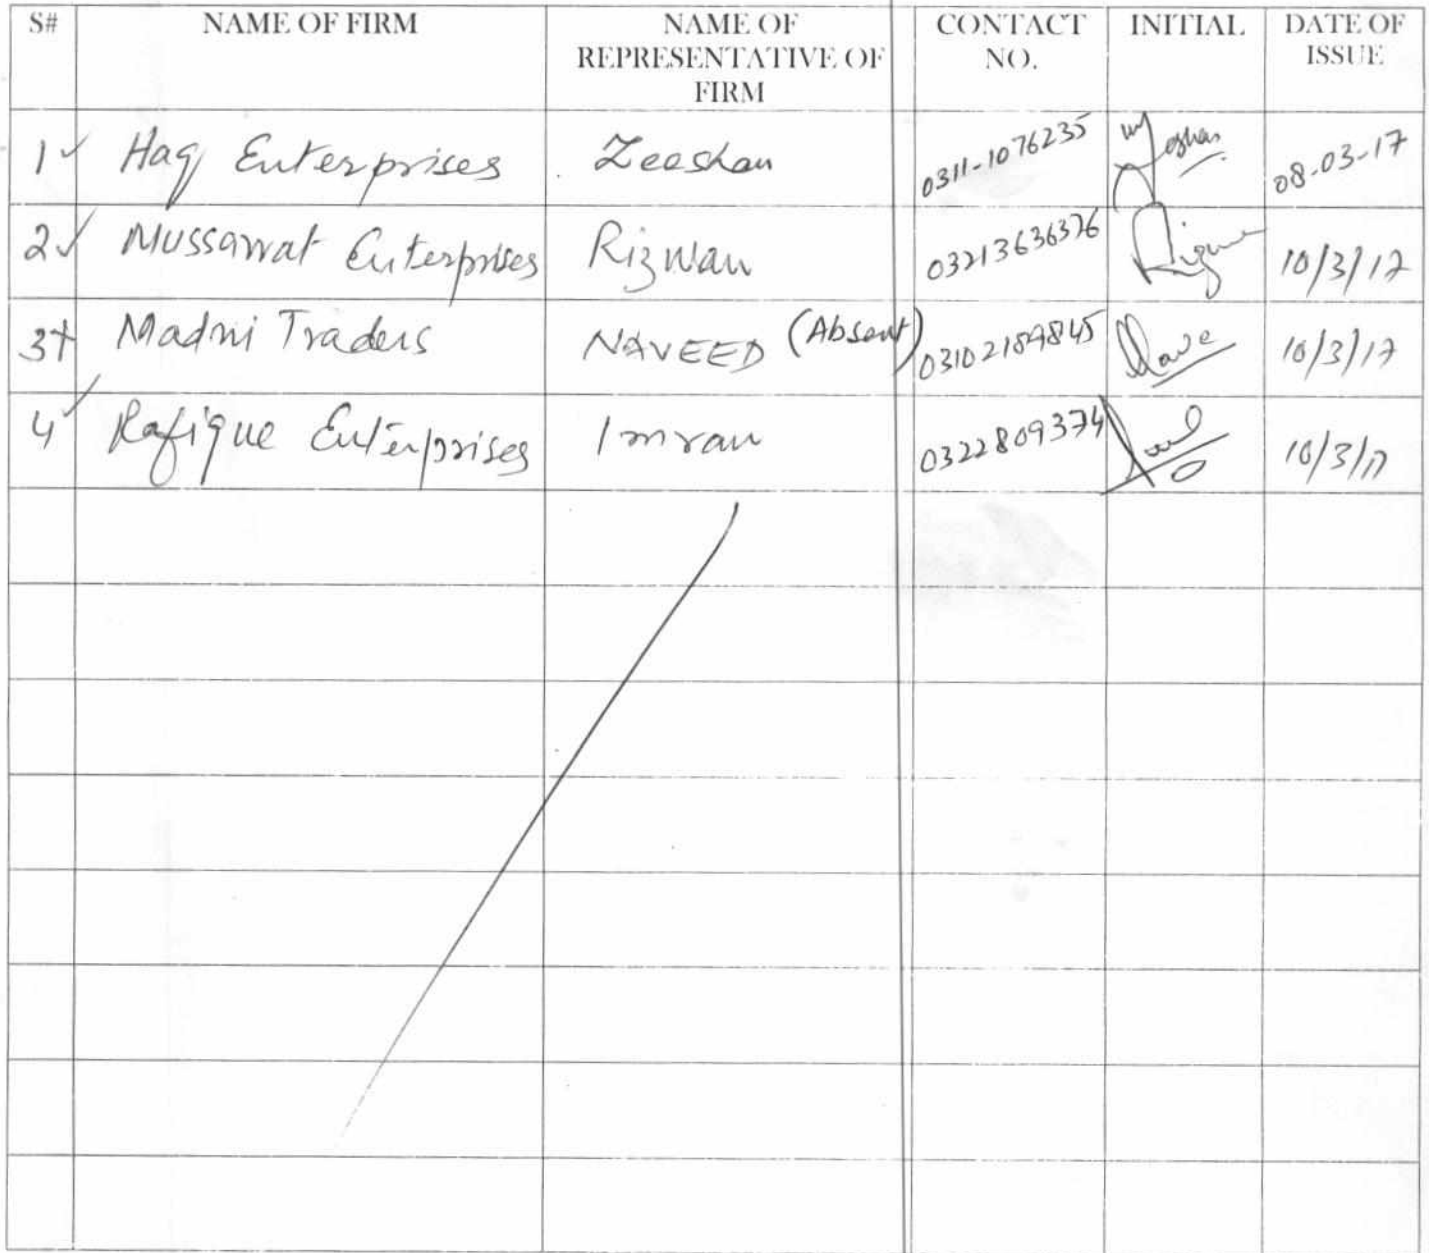 S# NAME OF FIRM NAME OF REPRESENTATIVE OF FIRM CONTACT NO. INITIAL DATE OF ISSUE
1 ✓ Haq Enterprises Zeeshan 0311-1076235 08-03-17
2 ✓ Mussarrat Enterprises Rizwan 03213636376 10/3/17
3 + Madni Traders NAVEED (Absent) 03102189845 10/3/17
4 ✓ Rafique Enterprises Imran 0322809374 10/3/17